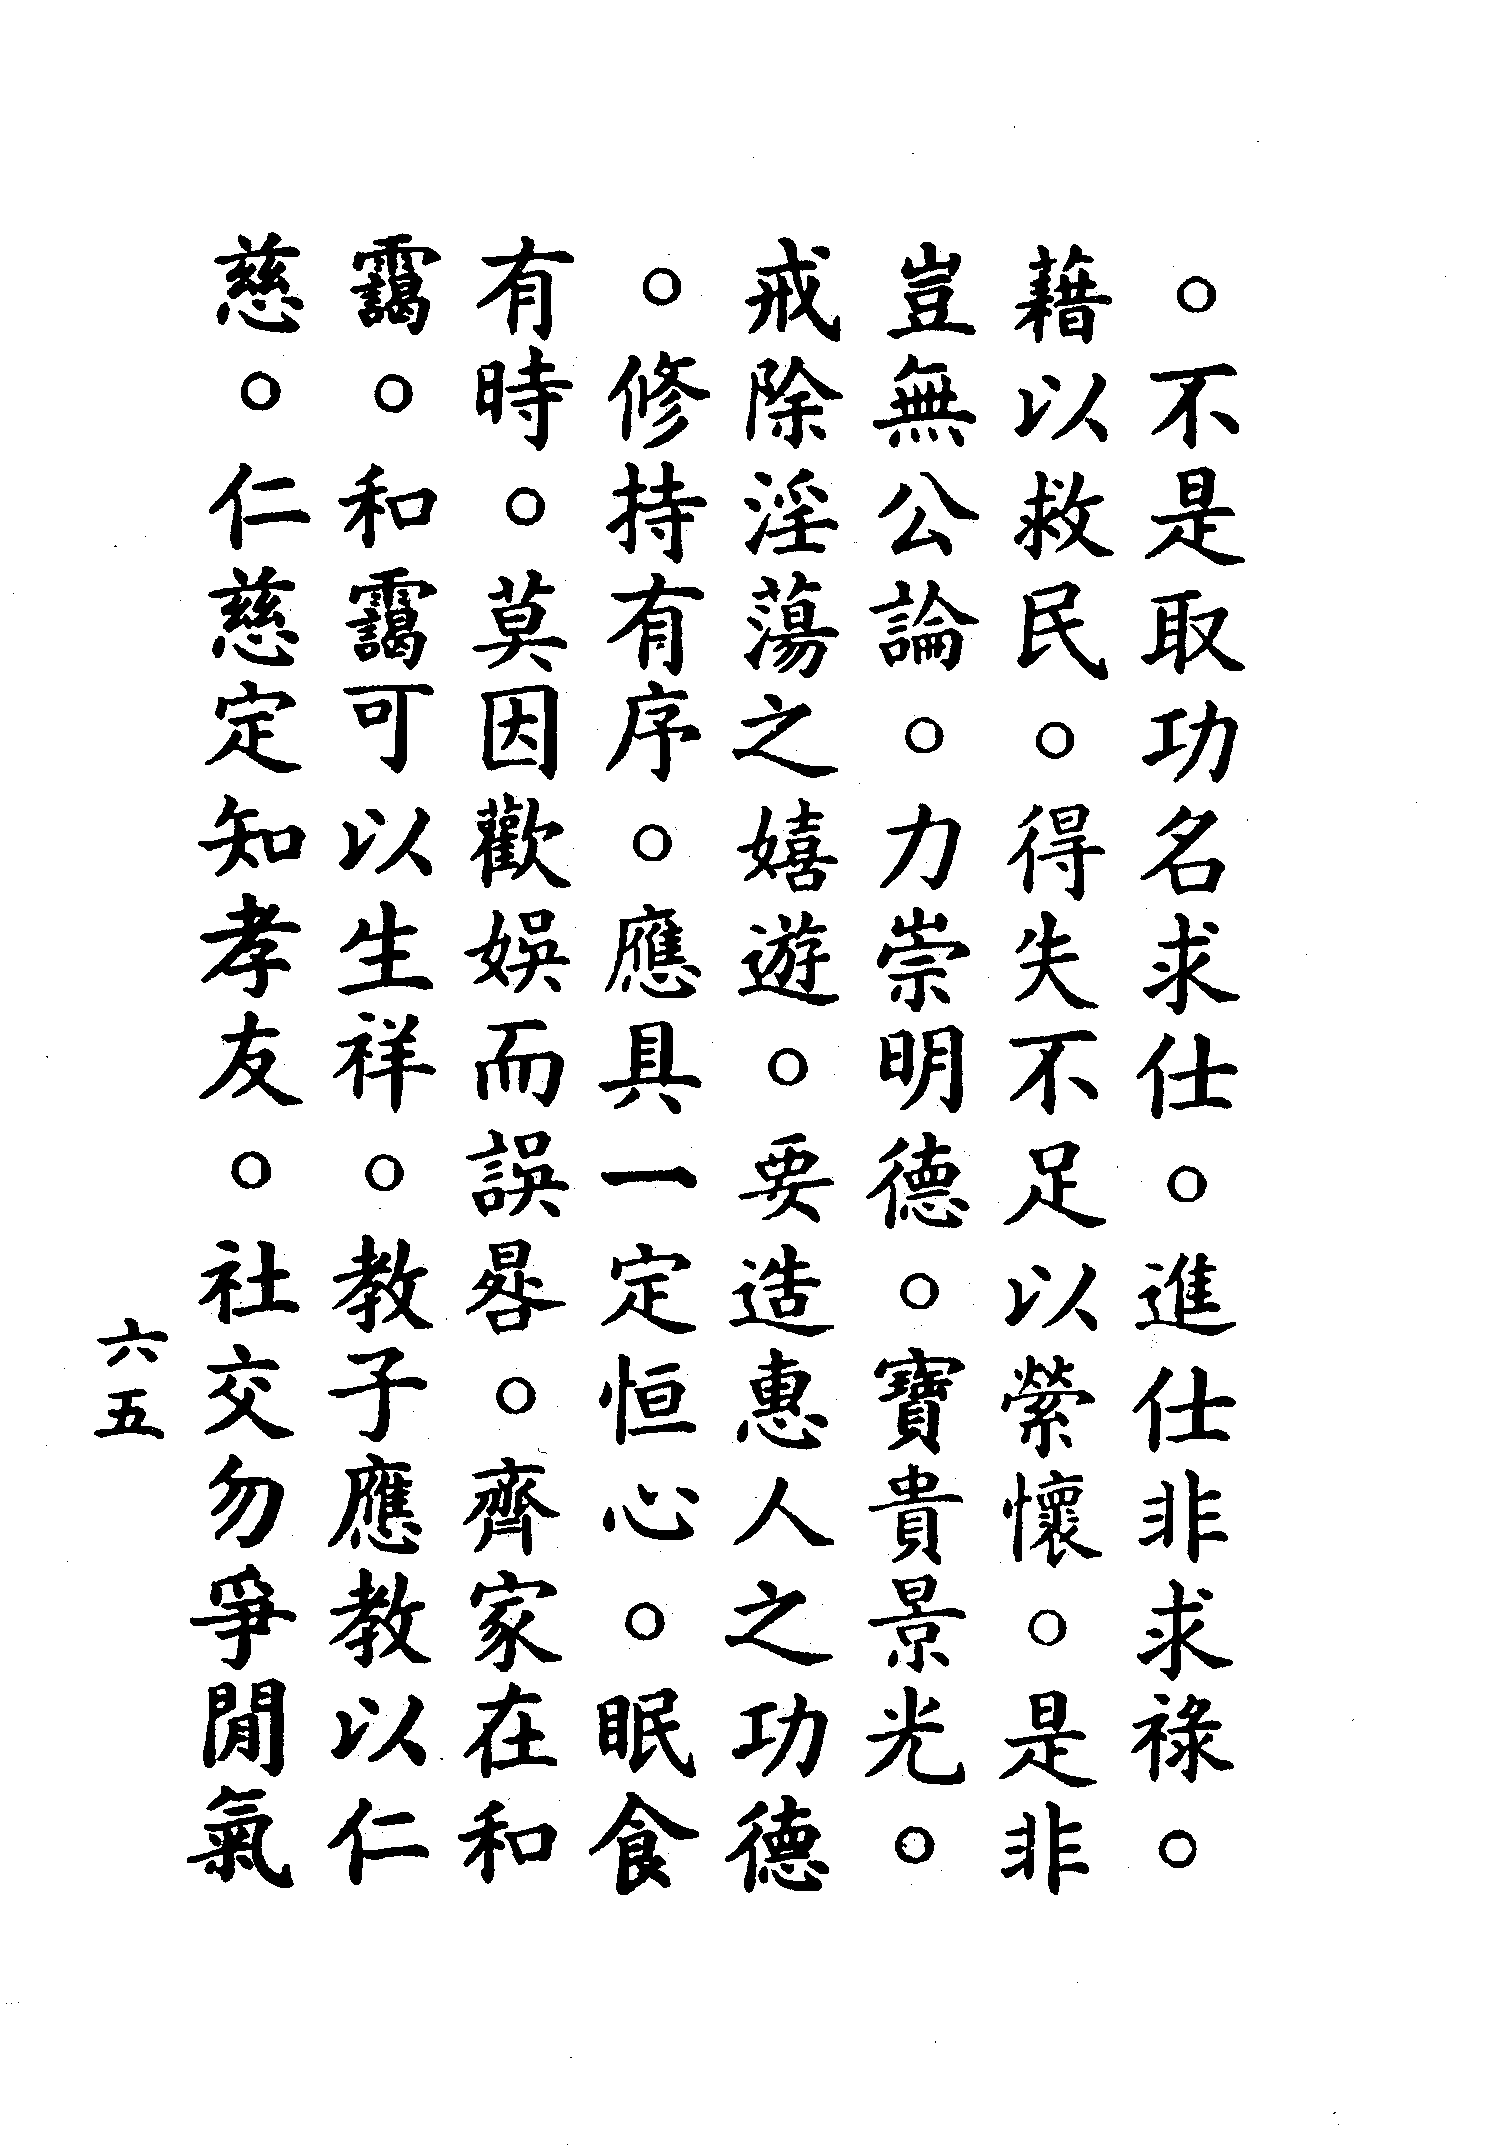 。不是取功名求仕。進仕非求祿。
藉以救民。得失不足以縈懷。是非
豈無公論。力崇明德。寶貴景光。
戒除淫蕩之嬉遊。要造惠人之功德
。修持有序。應具一定恒心。眠食
有時。莫因歡娛而誤晷。齊家在和
靄。和靄可以生祥。教子應教以仁
慈。仁慈定知孝友。社交勿爭閒氣
六五